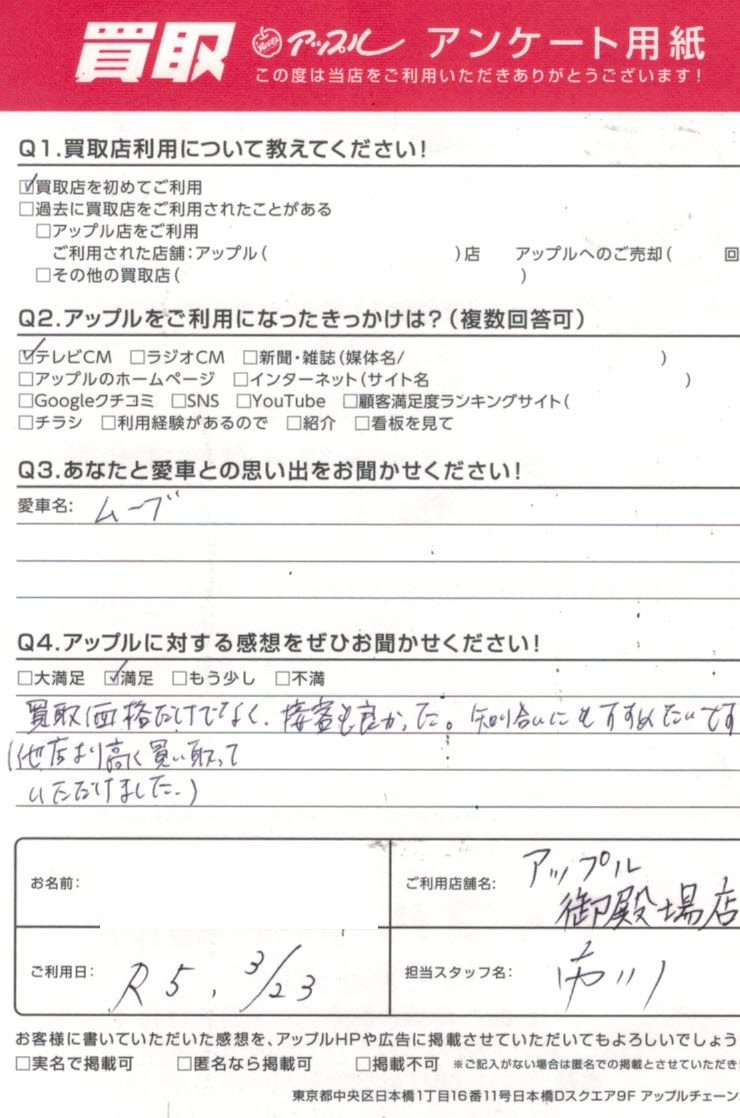 買取 Apple アップル アンケート用紙
この度は当店をご利用いただきありがとうございます!
Q1.買取店利用について教えてください!
☑買取店を初めてご利用
□過去に買取店をご利用されたことがある
□アップル店をご利用
ご利用された店舗:アップル( )店 アップルへのご売却( 回
□その他の買取店( )
Q2.アップルをご利用になったきっかけは?(複数回答可)
☑テレビCM □ラジオCM □新聞・雑誌(媒体名/ )
□アップルのホームページ □インターネット(サイト名 )
□Googleクチコミ □SNS □YouTube □顧客満足度ランキングサイト(
□チラシ □利用経験があるので □紹介 □看板を見て
Q3.あなたと愛車との思い出をお聞かせください!
愛車名: ムーブ
Q4.アップルに対する感想をぜひお聞かせください!
□大満足 ☑満足 □もう少し □不満
買取価格だけでなく、接客も良かった。知り合いにもすすめたいです
(他店より高く買い取って
いただけました。)
お名前:
ご利用店舗名: アップル
御殿場店
ご利用日: R5. 3/23
担当スタッフ名: 川
お客様に書いていただいた感想を、アップルHPや広告に掲載させていただいてもよろしいでしょう
□実名で掲載可 □匿名なら掲載可 □掲載不可 ※ご記入がない場合は匿名での掲載とさせていただき
東京都中央区日本橋1丁目16番11号日本橋Dスクエア9F アップルチェーン